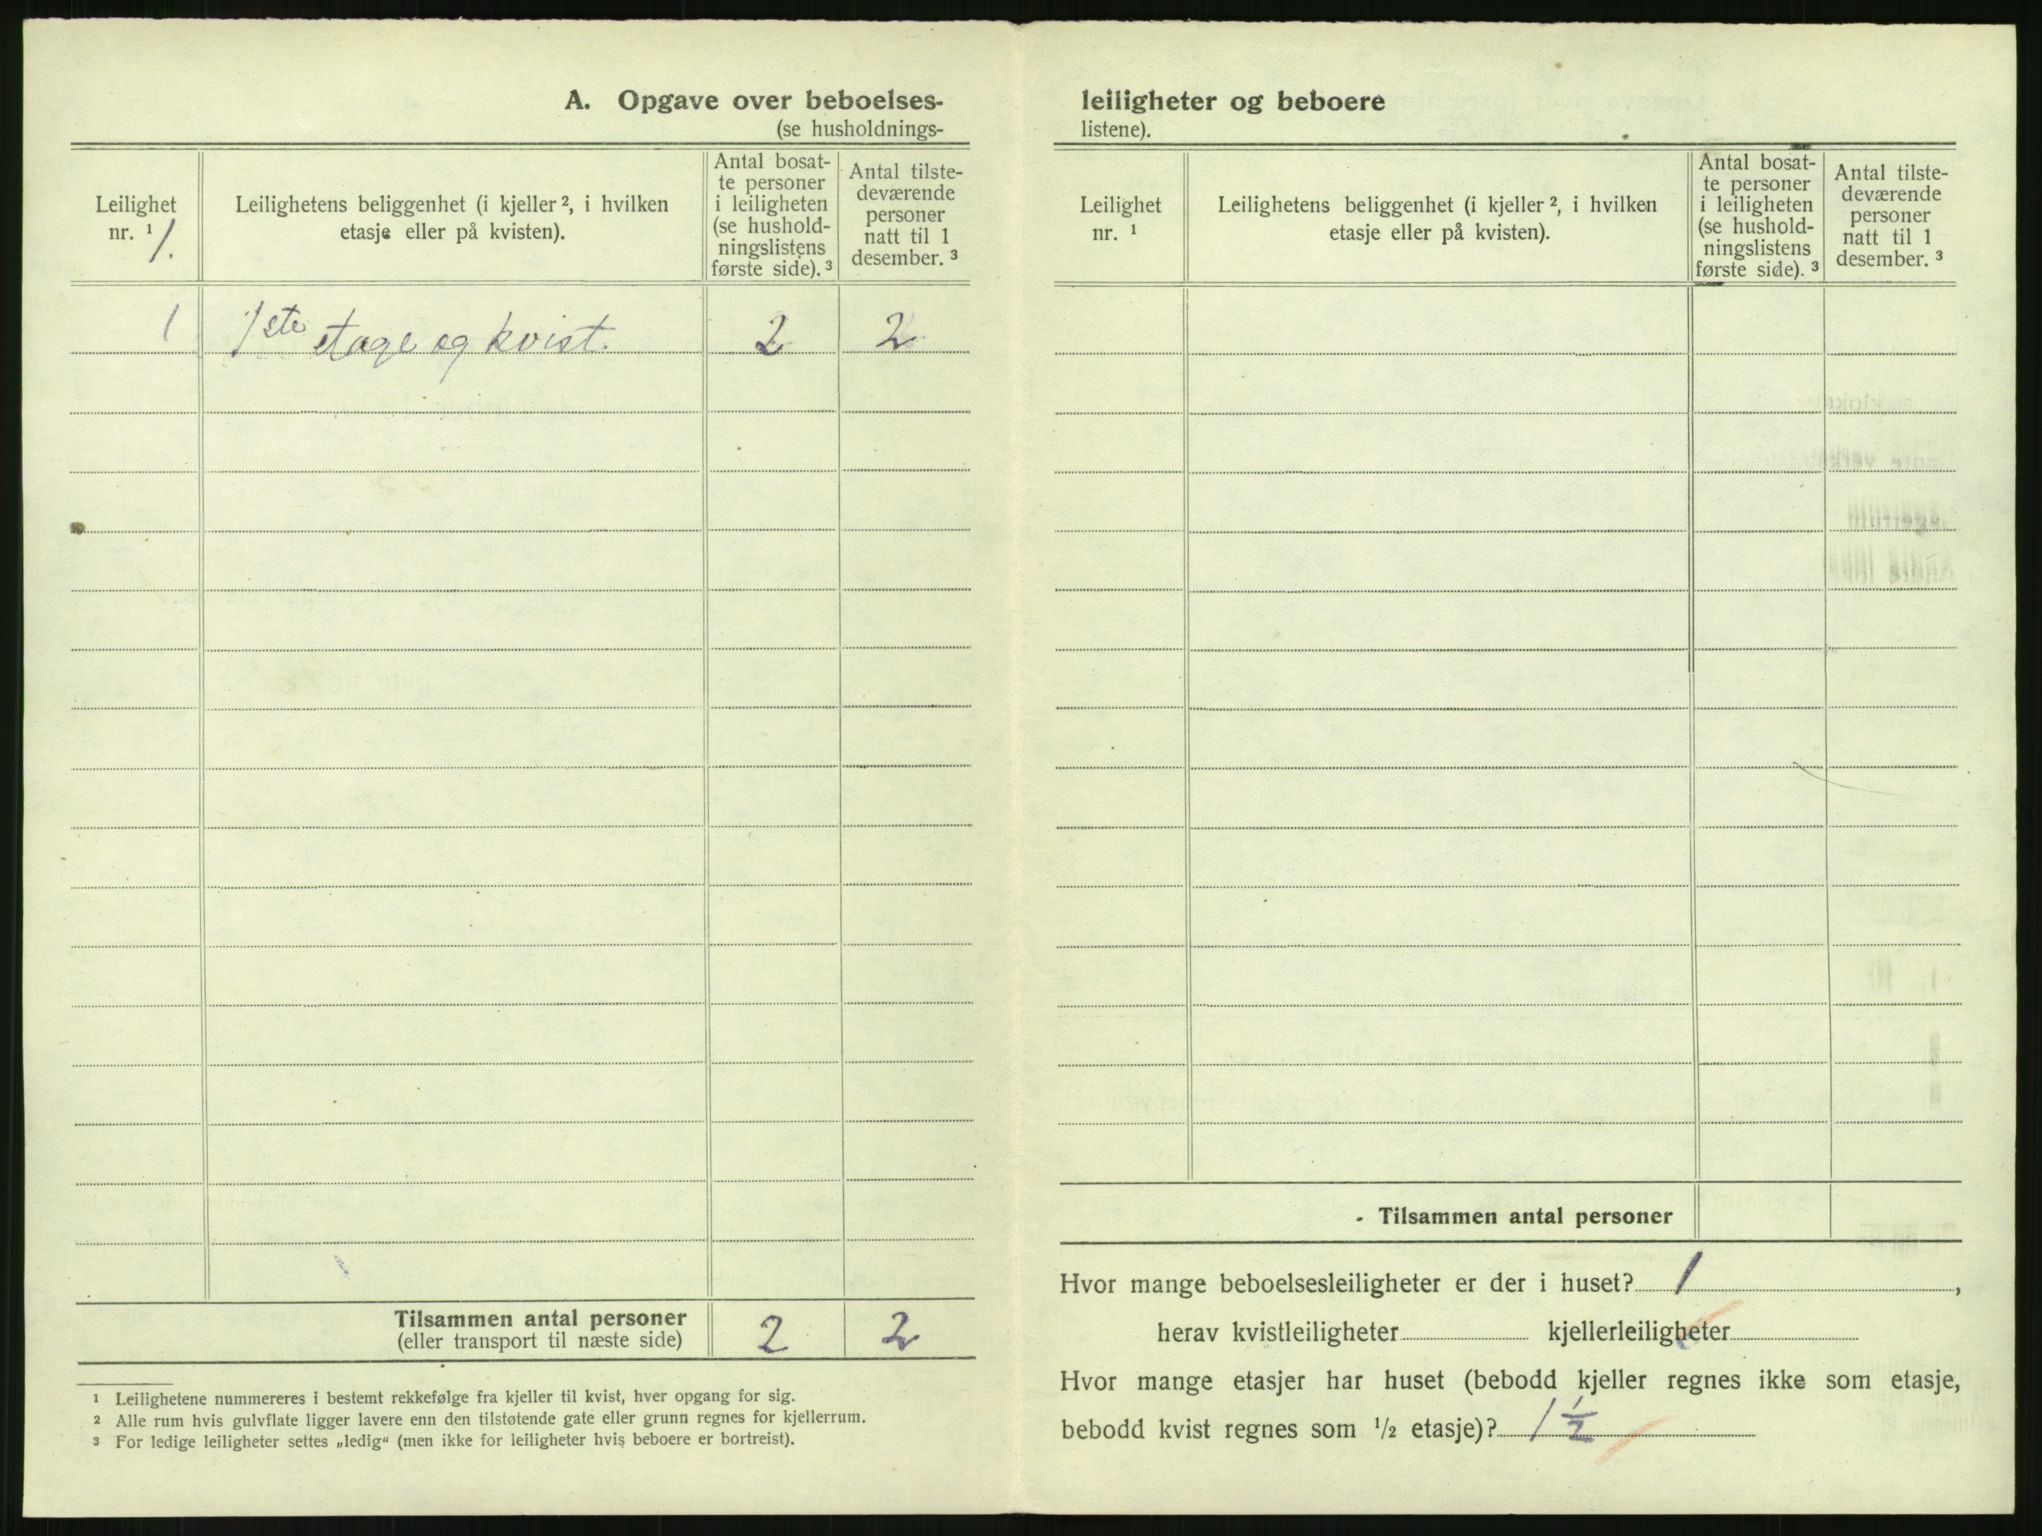 A. Opgave over beboelses-
(se husholdnings-
Leilighet
nr. ¹
1.
Leilighetens beliggenhet (i kjeller ², i hvilken
etasje eller på kvisten).
Antal bosat-
te personer
i leiligheten
(se hushold-
ningslistens
første side). ³
Antal tilste-
deværende
personer
natt til 1
desember. ³
1 1ste etage og kvist. 2 2
Tilsammen antal personer 2 2
(eller transport til næste side)
¹ Leilighetene nummereres i bestemt rekkefølge fra kjeller til kvist, hver opgang for sig.
² Alle rum hvis gulvflate ligger lavere enn den tilstøtende gate eller grunn regnes for kjellerrum.
³ For ledige leiligheter settes „ledig“ (men ikke for leiligheter hvis beboere er bortreist).
leiligheter og beboere
listene).
Leilighet
nr. ¹
Leilighetens beliggenhet (i kjeller ², i hvilken
etasje eller på kvisten).
Antal bosat-
te personer
i leiligheten
(se hushold-
ningslistens
første side). ³
Antal tilste-
deværende
personer
natt til 1
desember. ³
Tilsammen antal personer
Hvor mange beboelsesleiligheter er der i huset? 1,
herav kvistleiligheter kjellerleiligheter
Hvor mange etasjer har huset (bebodd kjeller regnes ikke som etasje,
bebodd kvist regnes som ½ etasje)? 1 ½